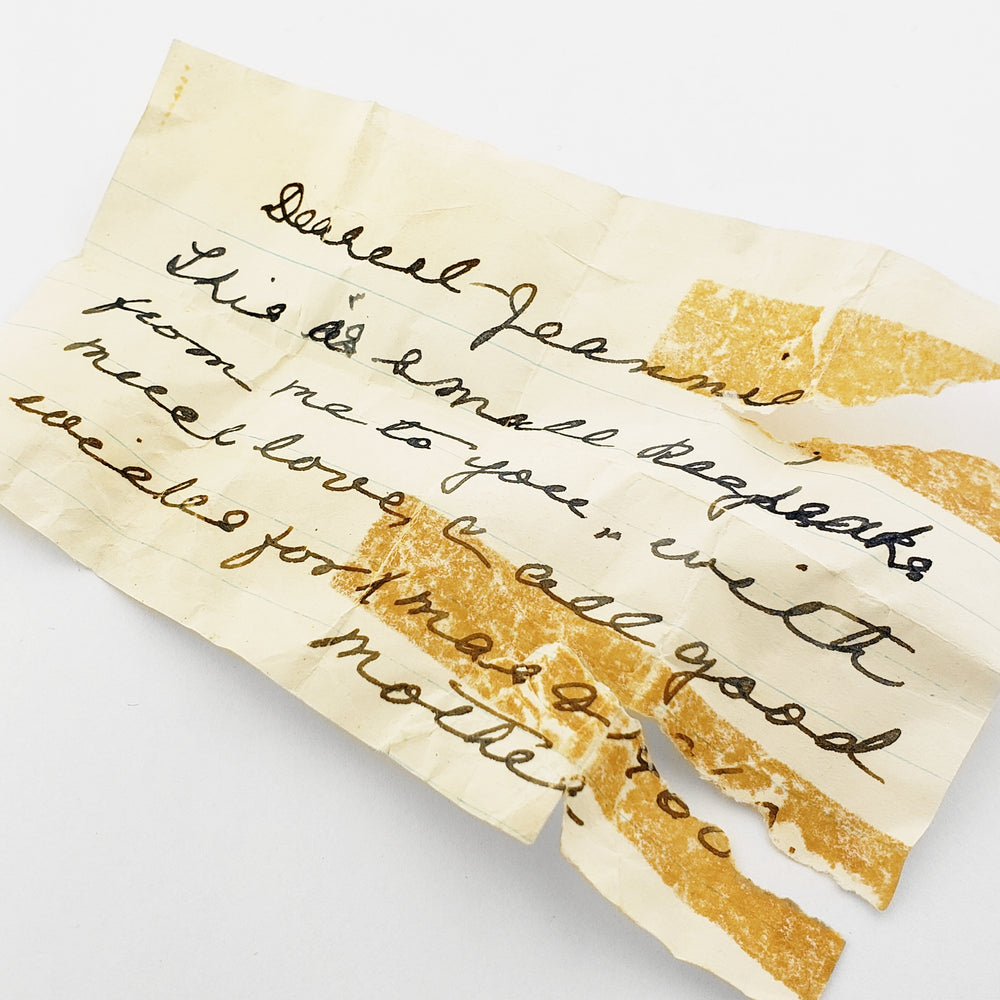 Dearest Jeannie,
This is a small Keepsake
from me to you, with
much love, & all good
wishes for Xmas,
Mother